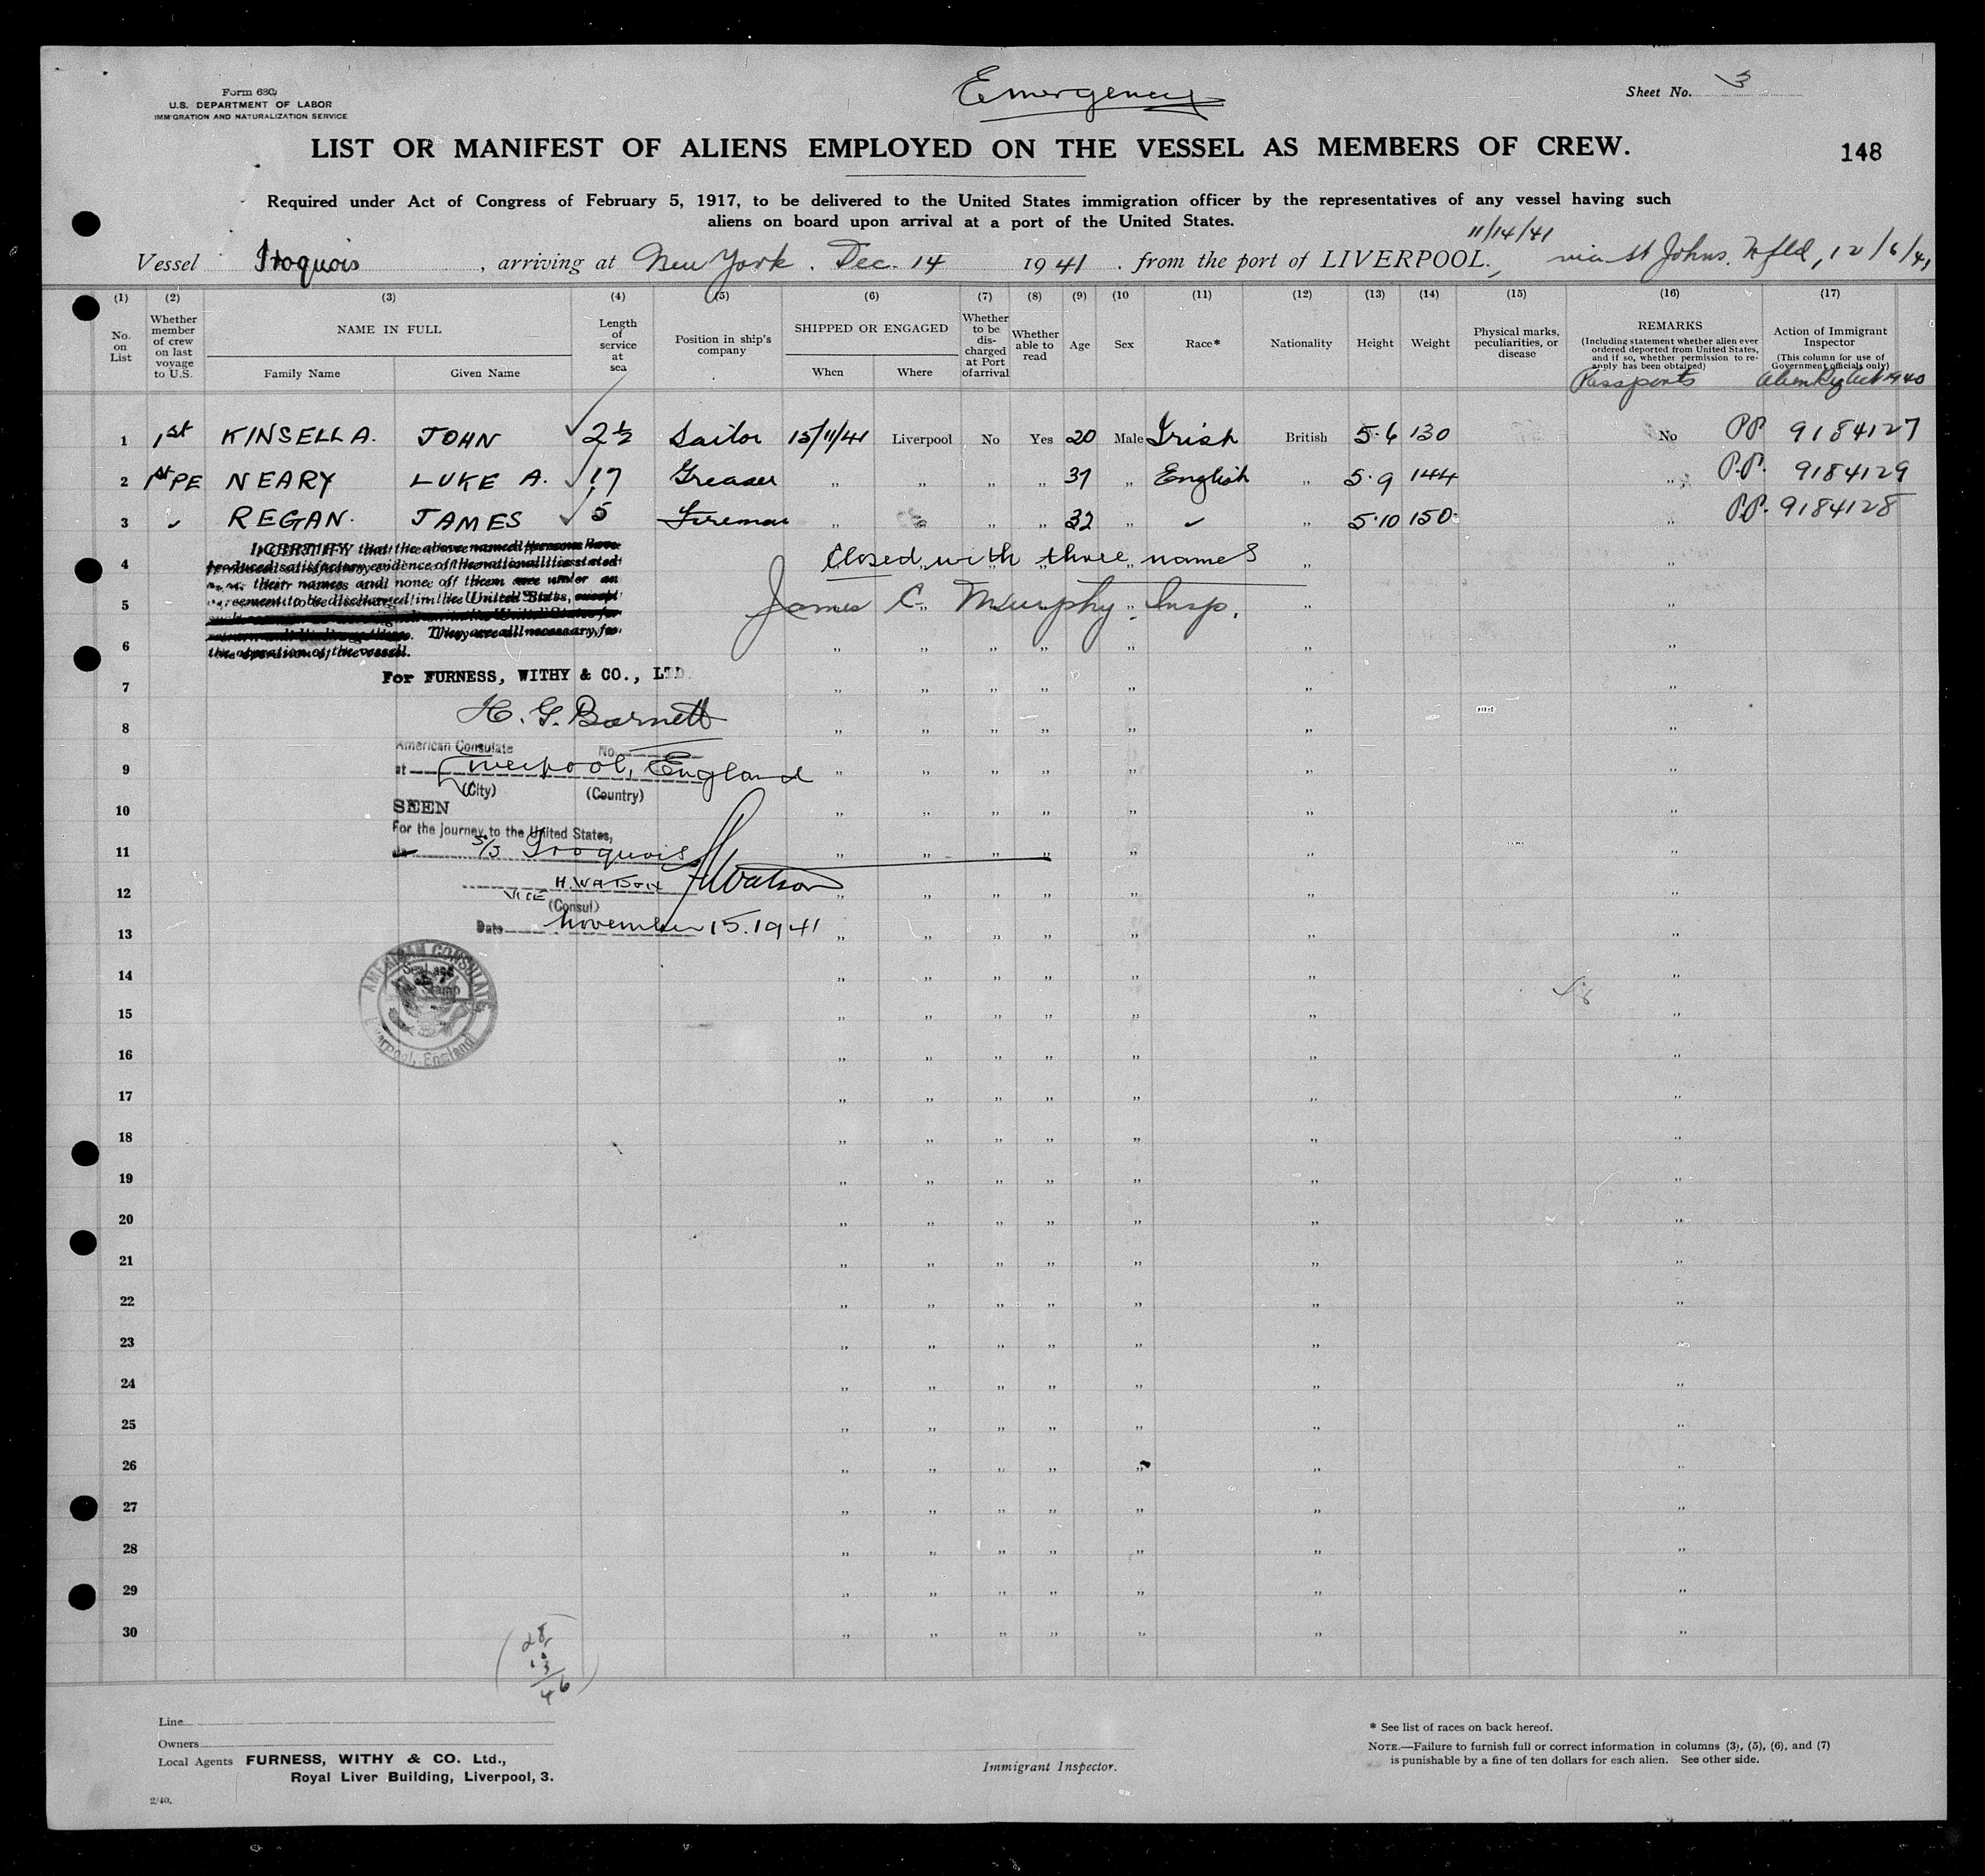 Emergency
Form 680
U.S. DEPARTMENT OF LABOR
IMMIGRATION AND NATURALIZATION SERVICE
Sheet No. 3
LIST OR MANIFEST OF ALIENS EMPLOYED ON THE VESSEL AS MEMBERS OF CREW.
148
Required under Act of Congress of February 5, 1917, to be delivered to the United States immigration officer by the representatives of any vessel having such
aliens on board upon arrival at a port of the United States.
11/14/41
Vessel Iroquois, arriving at New York. Dec. 14 1941. from the port of LIVERPOOL., via St Johns. Nfld, 12/6/41
(1) (2) (3) (4) (5) (6) (7) (8) (9) (10 (11) (12) (13) (14) (15) (16) (17)
No. on List
Whether member of crew on last voyage to U.S.
NAME IN FULL
Family Name Given Name
Length of service at sea
Position in ship's company
SHIPPED OR ENGAGED
When Where
Whether to be discharged at Port of arrival
Whether able to read
Age
Sex
Race*
Nationality
Height
Weight
Physical marks, peculiarities, or disease
REMARKS
(Including statement whether alien ever ordered deported from United States, and if so, whether permission to re-apply has been obtained)
Passports
Action of Immigrant Inspector
(This column for use of Government officials only)
Alien Reg Act 1940
1 1st KINSELLA. JOHN ✓ 2½ Sailor 15/11/41 Liverpool No Yes 20 Male Irish British 5·6 130 No PP 9184127
2 1st PE NEARY LUKE A. ✓ 17 Greaser " " " " 37 " English " 5·9 144 " P.P. 9184129
3 ✓ REGAN. JAMES ✓ 5 Fireman " " " " 32 " ✓ " 5·10 150· " P.P. 9184128
4 Closed with three names
5 James C. Murphy Insp.
I CERTIFY that the above named persons have
produced satisfactory evidence of the nationalities stated
their names and none of them are under an
agreement to be discharged in the United States, except
They are all necessary for
the operation of the vessel.
6
7
For FURNESS, WITHY & CO., LTD.
8
H. G. Barnett
American Consulate No.
9
at Liverpool, England
(City) (Country)
10
SEEN
For the journey to the United States,
11
S/S Iroquois
12
H. WATSON HWatson
VICE (Consul)
13
Date November 15. 1941
AMERICAN CONSULATE
Seal and
Stamp
Liverpool, England
14
15
16
17
18
19
20
21
22
23
24
25
26
27
28
29
30
28
3
46
Line
Owners
Local Agents FURNESS, WITHY & CO. Ltd.,
Royal Liver Building, Liverpool, 3.
2/40.
Immigrant Inspector.
* See list of races on back hereof.
NOTE.—Failure to furnish full or correct information in columns (3), (5), (6), and (7)
is punishable by a fine of ten dollars for each alien. See other side.